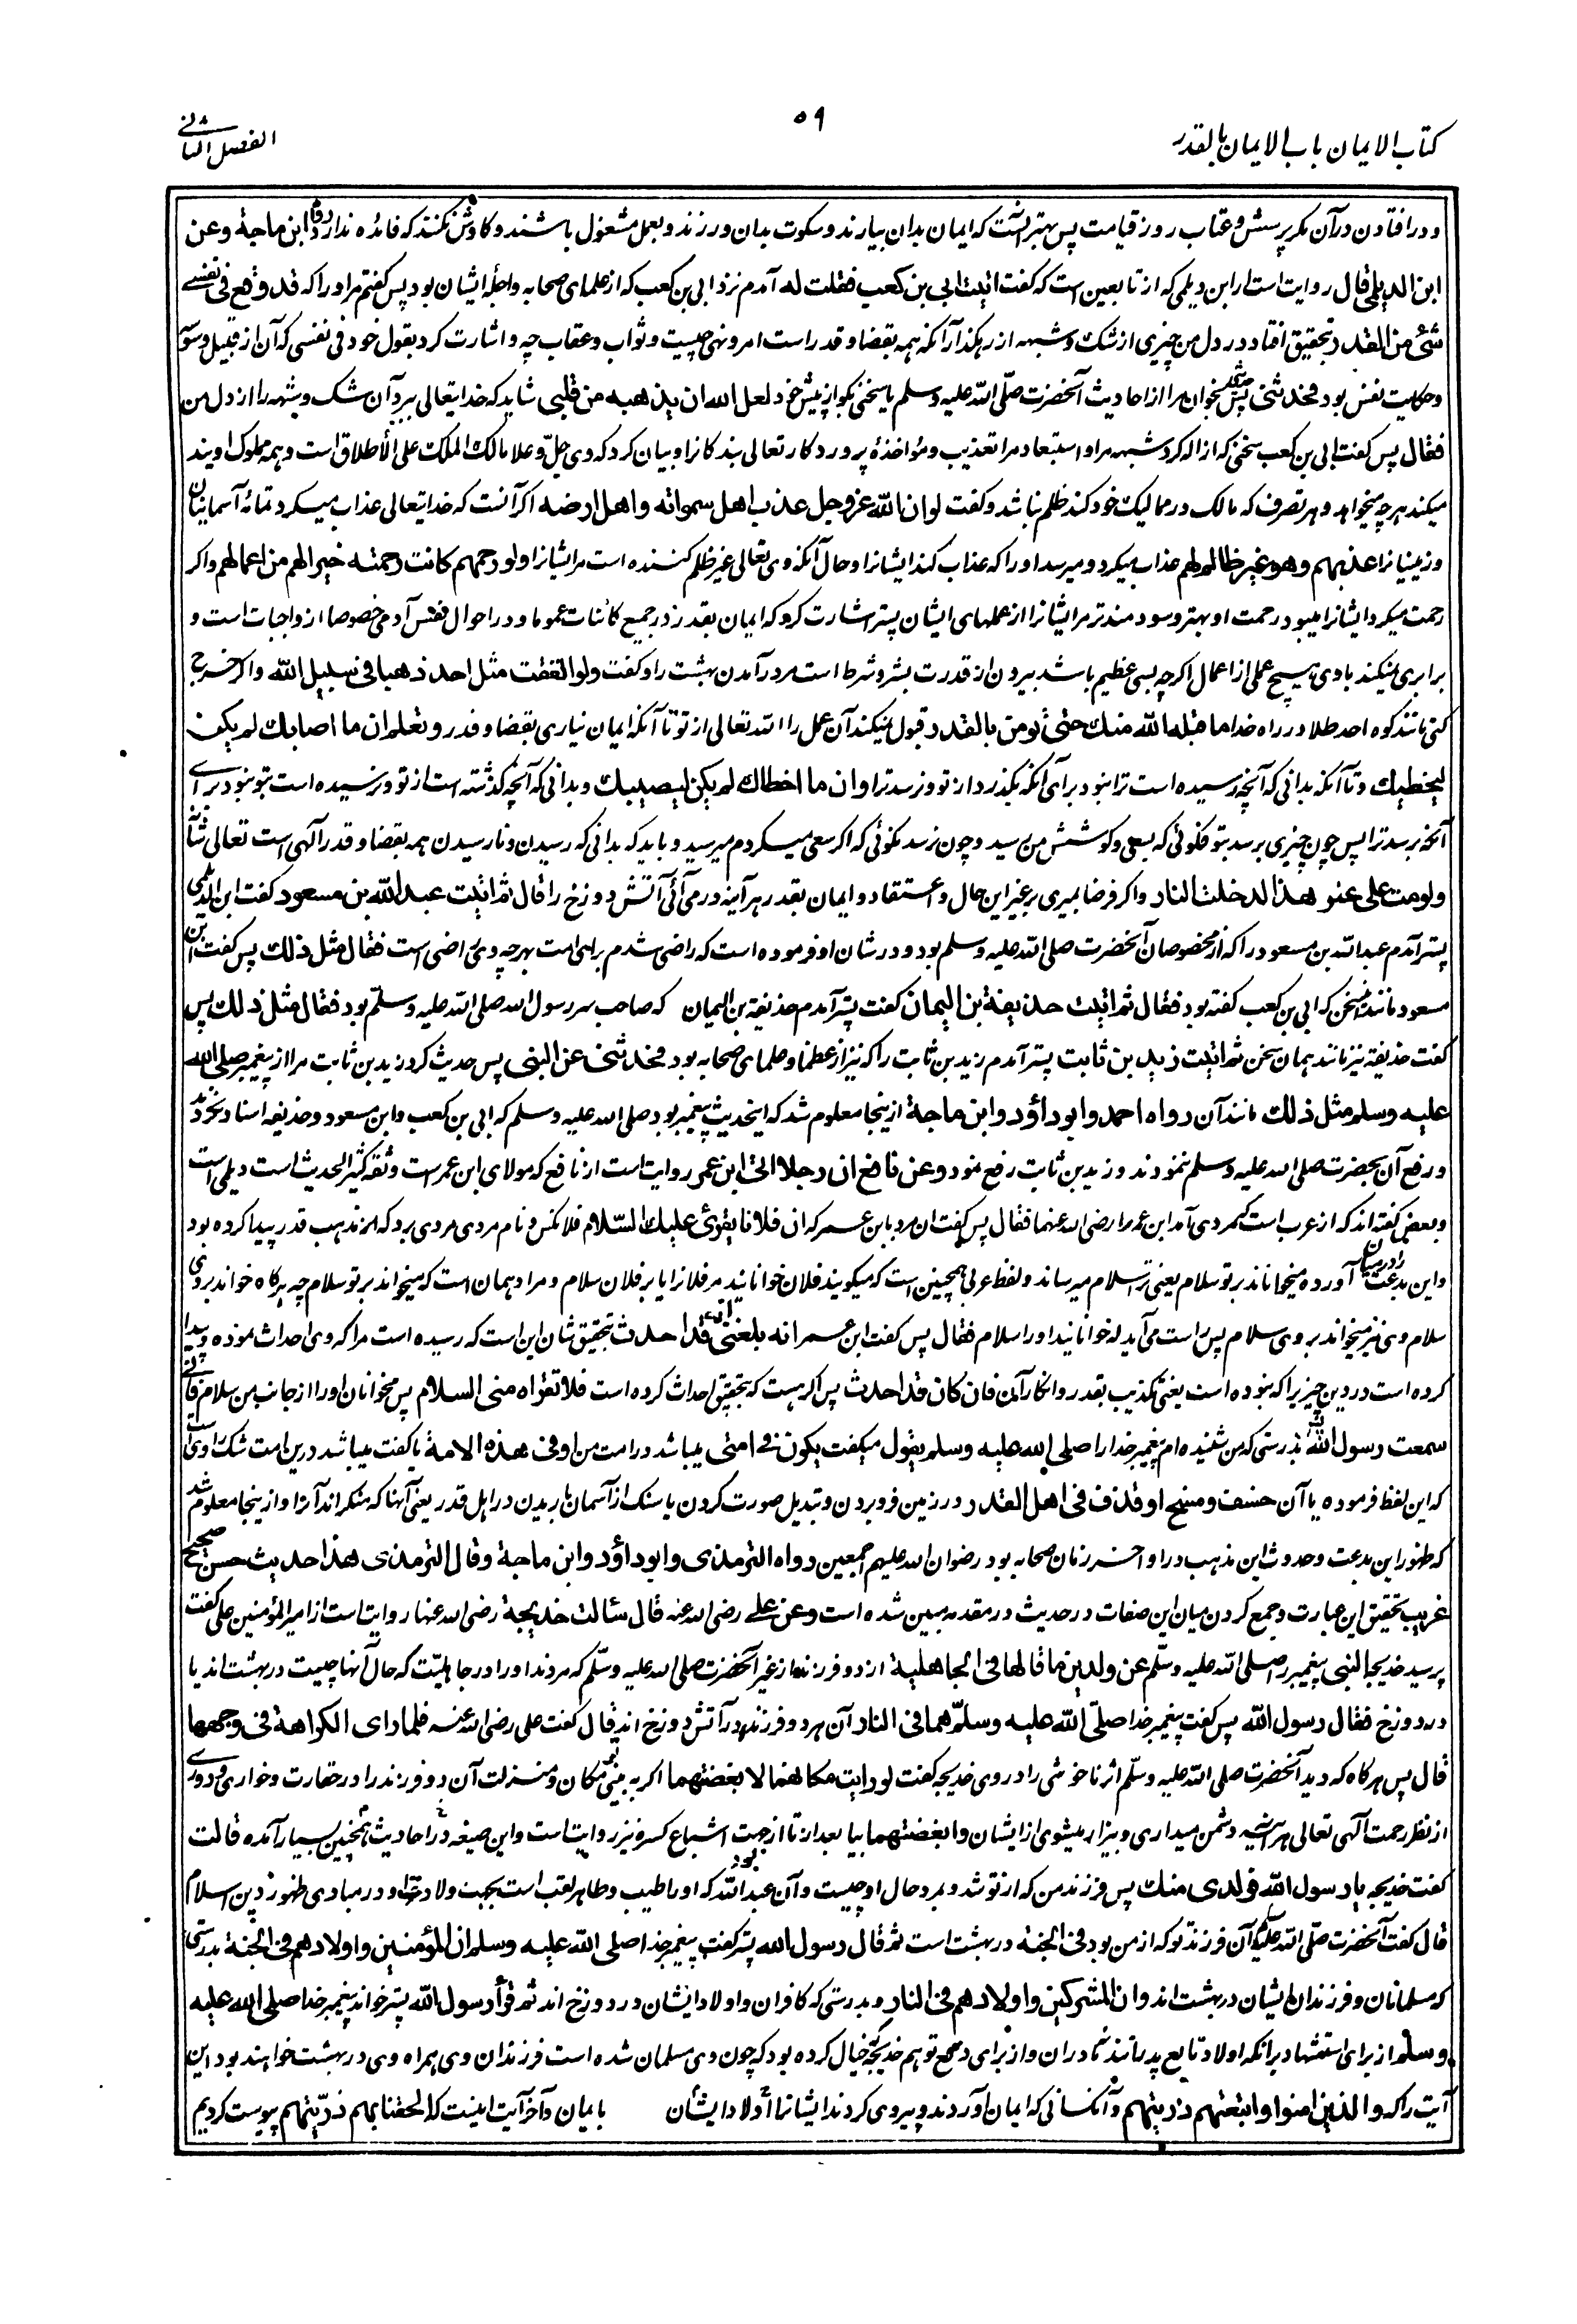 کتاب الایمان باب الایمان بالقدر
۵۹
الفصل الثانی
و در افتادن در آن مگر پرسش و عتاب روز قیامت پس بهتر آنست که ایمان بدان بیارند و سکوت بدان ورزند و بعمل مشغول باشند و کاوش نکنند که فائده ندارد رواه ابن ماجة وعن
ابن الدیلمی قال روایت است از ابن دیلمی که از تابعین است که گفت اتیت ابی بن کعب فقلت له آمدم نزد ابی بن کعب که از علمای صحابه و اجله ایشان بود پس گفتم مر او را که قد وقع فی نفسی
شئ من القدر بتحقیق افتاد در دل من چیزی از شک و شبهه از رهگذر آنکه همه بقضا و قدر است امر و نهی چیست و ثواب و عقاب چه و اشارت کرد بقول خود فی نفسی که آن از قبیل وسوسه
و حکایت نفس بود فحدثنی پس بخوان مرا از احادیث آنحضرت صلّی الله علیه وسلم یا سخنی بگو از پیش خود لعل الله ان یذهبه من قلبی شاید که خدایتعالی ببرد آن شک و شبهه را از دل من
فقال پس گفت ابی بن کعب سخنی که ازاله کرد شبهه مرا و استبعاد مرا تعذیب و مؤاخذهٔ پروردگار تعالی بندگانرا و بیان کرد که وی جلّ و علا مالک الملک علی الاطلاق است و همه مملوک اویند
میکند هر چه میخواهد و هر تصرف که مالک در ممالیک خود کند ظلم نباشد و گفت لو ان الله عز و جل عذب اهل سمواته واهل ارضه اگر آنست که خدایتعالی عذاب میکرد تمامهٔ آسمانیان
و زمینیانرا عذبهم وهو غیر ظالم لهم عذاب میکرد و میرسد او را که عذاب کند ایشانرا و حال آنکه وی تعالی غیر ظلم کننده است مر ایشانرا ولو رحمهم کانت رحمته خیرا لهم من اعمالهم و اگر
رحمت میکرد ایشانرا میبود رحمت او بهتر و سودمندتر مر ایشانرا از عملهای ایشان پستر اشارت کرد که ایمان بقدر در جمیع کائنات عموما و در احوال نفس آدمی خصوصا از واجبات است و
برابری نمیکند با وی هیچ عملی از اعمال اگرچه بسی عظیم باشد بیرون از قدرت بشر و شرط است مر در آمدن بهشت را و گفت ولو انفقت مثل احد ذهبا فی سبیل الله و اگر خرج
کنی مانند کوه احد طلا در راه خدا ما قبله الله منک حتی تؤمن بالقدر قبول نمیکند آن عمل را الله تعالی از تو تا آنکه ایمان نیاری بقضا و قدر وتعلم ان ما اصابک لم یکن
لیخطئک و تا آنکه بدانی که آنچه رسیده است ترا نبود برای آنکه بگذرد از تو و نرسد ترا وان ما اخطاک لم یکن لیصیبک و بدانی که آنچه گذشته است از تو و نرسیده است بتو نبود برای
آنکه برسد ترا پس چون چیزی برسد بتو مگوئی که بسعی و کوشش من رسید و چون نرسد مگوئی که اگر سعی میکردم میرسید و باید که بدانی که رسیدن و نارسیدن همه بقضا و قدر آلهی است تعالی شانه
ولو مت علی غیر هذا لدخلت النار و اگر فرضا بمیری بر غیر این حال و اعتقاد و ایمان بقدر هر آینه در می آئی آتش دوزخ را قال ثم اتیت عبد الله بن مسعود گفت ابن الدیلمی
پستر آمدم عبد الله بن مسعود را که از مخصوصان آنحضرت صلی الله علیه وسلم بود و در شان او فرموده است که راضی شدم برای امت بهر چه وی راضی است فقال مثل ذلک پس گفت ابن
مسعود مانند سخن که ابی بن کعب گفته بود فقال ثم اتیت حذیفة بن الیمان گفت پستر آمدم حذیفه بن الیمان که صاحب سر رسول الله صلی الله علیه وسلّم بود فقال مثل ذلک پس
گفت حذیفه نیز مانند همان سخن ثم اتیت زید بن ثابت پستر آمدم زید بن ثابت را که نیز از عظما و علمای صحابه بود فحدثنی عن النبی پس حدیث کرد زید بن ثابت مرا از پیغمبر صلی الله
علیه وسلم مثل ذلک مانند آن رواه احمد وابو داؤد وابن ماجة ازینجا معلوم شد که این حدیث پیغمبر بود صلی الله علیه وسلم که ابی بن کعب و ابن مسعود و حذیفه اسناد نکردند
و رفع آن بحضرت صلی الله علیه وسلم ننمودند و زید بن ثابت رفع نمود وعن نافع ان رجلا اتی ابن عمر روایت است از نافع که مولای ابن عمر است و ثقه کثیر الحدیث است دیلمی است
و بعضی گفته اند که از عرب است که مردی آمد ابن عمر را رضی الله عنهما فقال پس گفت ان مرد با ابن عمر که ان فلانا یقرئ علیک السّلام فلانکس و نام مردی مردی برد که مذهب قدر پیدا کرده بود
و این بدعت را در میان آورده میخواناند بر تو سلام یعنی ترا سلام میرساند و لفظ عربی همچنین است که میگویند فلان خوانانید مر فلانرا یا بر فلان سلام و مراد همان است که میخواند بر تو سلام چه هرگاه خواند بر وی
سلام وی نیز میخواند بر وی سلام پس راست می آید که خوانانید او را سلام فقال پس گفت ابن عمر انه بلغنی انه قد احدث بتحقیق شان این است که رسیده است مرا که وی احداث نموده و پیدا
کرده است در دین چیزیرا که نبوده است یعنی تکذیب بقدر و انکار آن فان کان قد احدث پس اگر هست که بتحقیق احداث کرده است فلا تقرأه منی السلام پس مخوانان او را از جانب من سلام فانی
سمعت رسول الله بدرستی که من شنیده ام پیغمبر خدا را صلی الله علیه وسلم یقول میگفت یکون فی امتی میباشد در امت من او فی هذه الامة یا گفت میباشد درین امت شک راوی است
که این لفظ فرموده یا آن خسف ومسخ او قذف فی اهل القدر در زمین فرو بردن و تبدیل صورت کردن یا سنگ از آسمان باریدن در اهل قدر یعنی آنها که منکر اند آنرا و ازینجا معلوم شد
که ظهور این بدعت و حدوث این مذهب در اواخر زمان صحابه بود رضوان الله علیهم اجمعین رواه الترمذی وابو داؤد وابن ماجة وقال الترمذی هذا حدیث حسن صحیح
غریب تحقیق این عبارت و جمع کردن میان این صفات در حدیث در مقدمه مبین شده است وعن علی رضی الله عنه قال سئالت خدیجة رضی الله عنها روایت است از امیر المؤمنین علی گفت
پرسید خدیجه النبی پیغمبر را صلی الله علیه وسلّم عن ولدین ماتا لها فی الجاهلیة از دو فرزند از غیر آنحضرت صلی الله علیه وسلّم که مردند او را در جاهلیّت که حال آنها چیست در بهشت اند یا
در دوزخ فقال رسول الله پس گفت پیغمبر خدا صلّی الله علیه وسلّم هما فی النار آن هر دو فرزند در آتش دوزخ اند قال گفت علی رضی الله عنه فلما رای الکراهة فی وجهها
قال پس هرگاه که دید آنحضرت صلی الله علیه وسلّم اثر ناخوشی را در روی خدیجه گفت لو رایت مکانهما لابغضتهما اگر به بینی مکان و منزلت آن دو فرزند را در حقارت و خواری و دوری
از نظر رحمت آلهی تعالی هر آینه دشمن میداری و بیزار میشوی از ایشان وابغضتهما بیا بعد از تا از جهت اشباع کسره نیز روایت است و این صیغه در احادیث همچنین بسیار آمده قالت
گفت خدیجه یا رسول الله فولدی منک پس فرزند من که از تو شد و بمرد حال او چیست و آن عبد الله بود که او را طیب و طاهر لقب است بجهت ولادت او در مبادی ظهور دین اسلام
قال گفت آنحضرت صلّی الله علیه وسلم آن فرزند تو که از من بود فی الجنة در بهشت است ثم قال رسول الله پستر گفت پیغمبر خدا صلی الله علیه وسلم ان المؤمنین واولادهم فی الجنة بدرستی
که مسلمانان و فرزندان ایشان در بهشت اند وان المشرکین واولادهم فی النار و بدرستی که کافران و اولاد ایشان در دوزخ اند ثم قرأ رسول الله پستر خواند پیغمبر خدا صلی الله علیه
وسلم از برای استشهاد بر آنکه اولاد تابع پدرانند نه مادران و از برای دفع توهم خدیجه خیال کرده بود که چون وی مسلمان شده است فرزندان وی همراه وی در بهشت خواهند بود این
آیت را که والذین امنوا واتبعتهم ذریتهم و آنکسانی که ایمان آوردند و پیروی کردند ایشانرا اولاد ایشان بایمان و آخر آیت اینست که الحقنا بهم ذریّتهم پیوست کردیم